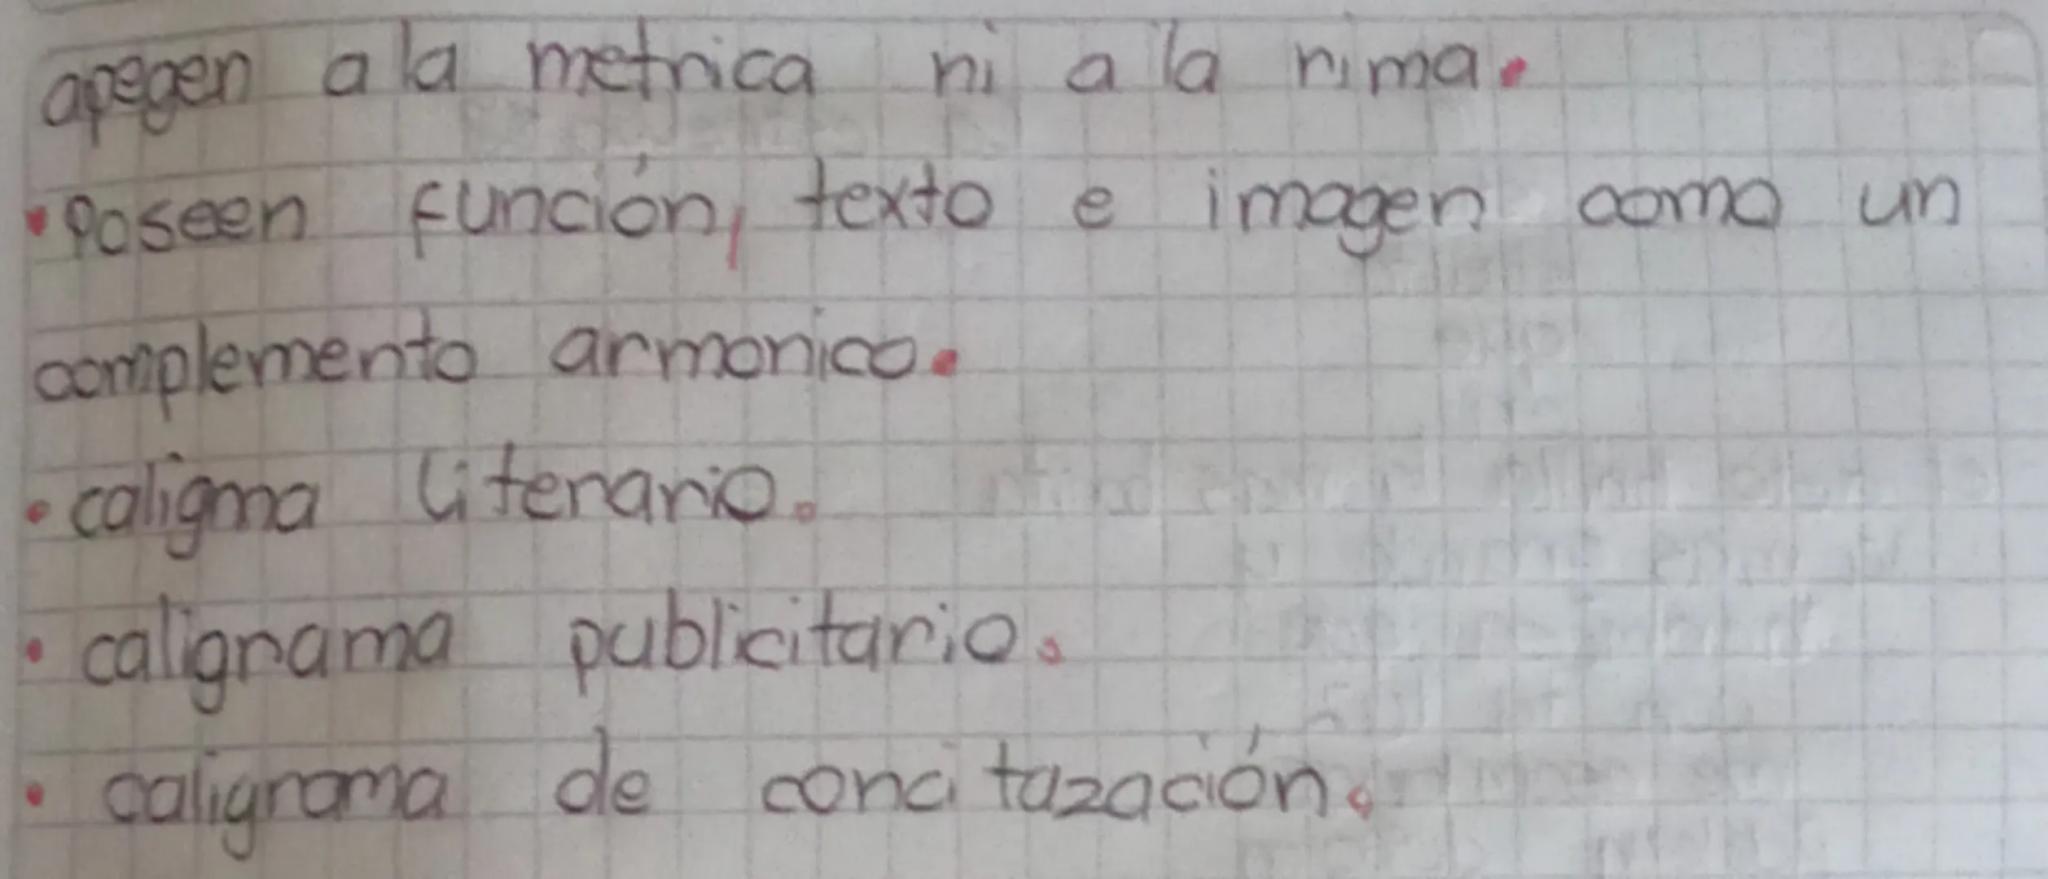 apegen a la metrica ni a la rima.
• Poseen función, texto e imagen como un
complemento armonico.
• caligma literario.
• caligrama publicitario.
• caligrama de concitazación.